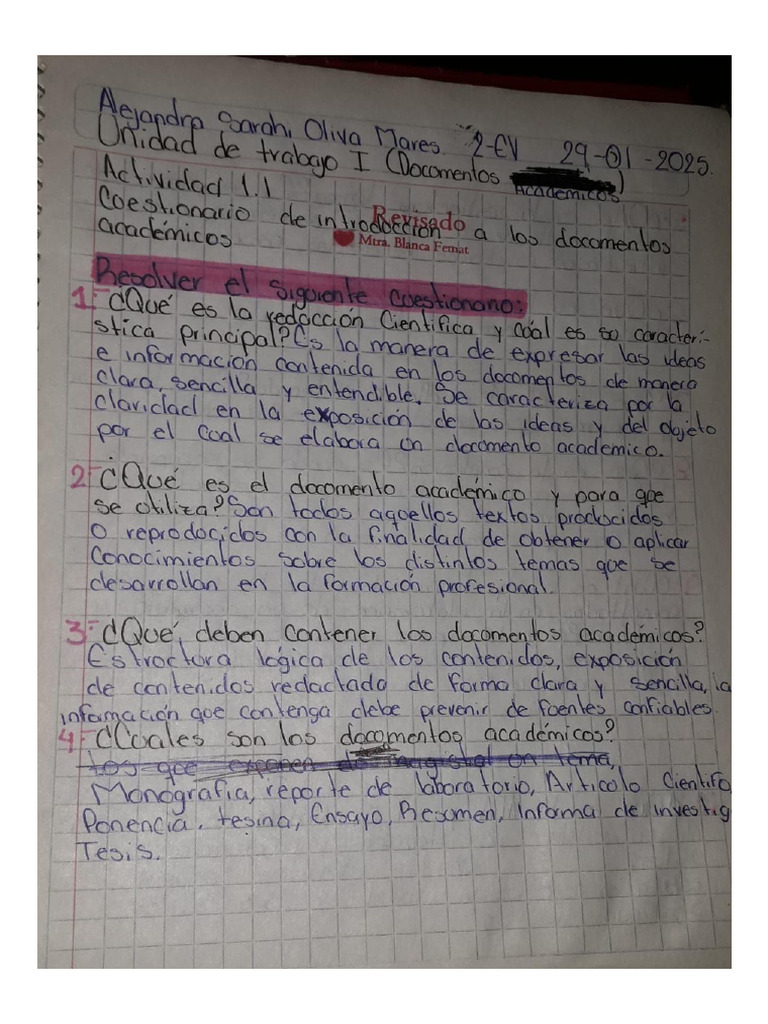 Alejandra Sarahi Oliva Mares. 2-CV 29-01-2025.
Unidad de trabajo I (Documentos Académicos)
Actividad 1.1
Cuestionario de introducción a los documentos
académicos
Revisado
Mtra. Blanca Femat
Resolver el siguiente cuestionario:
1- ¿Qué es la redacción Científica y cúal es su caracterí-
stica principal? Es la manera de expresar las ideas
e información contenida en los documentos de manera
clara, sencilla y entendible. Se caracteriza por la
claridad en la exposición de las ideas y del objeto
por el cual se elabora un documento academico.
2- ¿Qué es el documento académico y para que
se utiliza? Son todos aquellos textos producidos
o reproducidos con la finalidad de obtener o aplicar
conocimientos sobre los distintos temas que se
desarrollan en la formación profesional.
3- ¿Qué deben contener los documentos académicos?
Estructura lógica de los contenidos, exposición
de contenidos redactado de forma clara y sencilla, la
información que contenga debe prevenir de fuentes confiables.
4- ¿Cuales son los documentos académicos?
Los que exponen de un tema,
Monografia, reporte de laboratorio, Articulo Cientifo
Ponencia, tesina, Ensayo, Resumen, Informa de investig
Tesis.